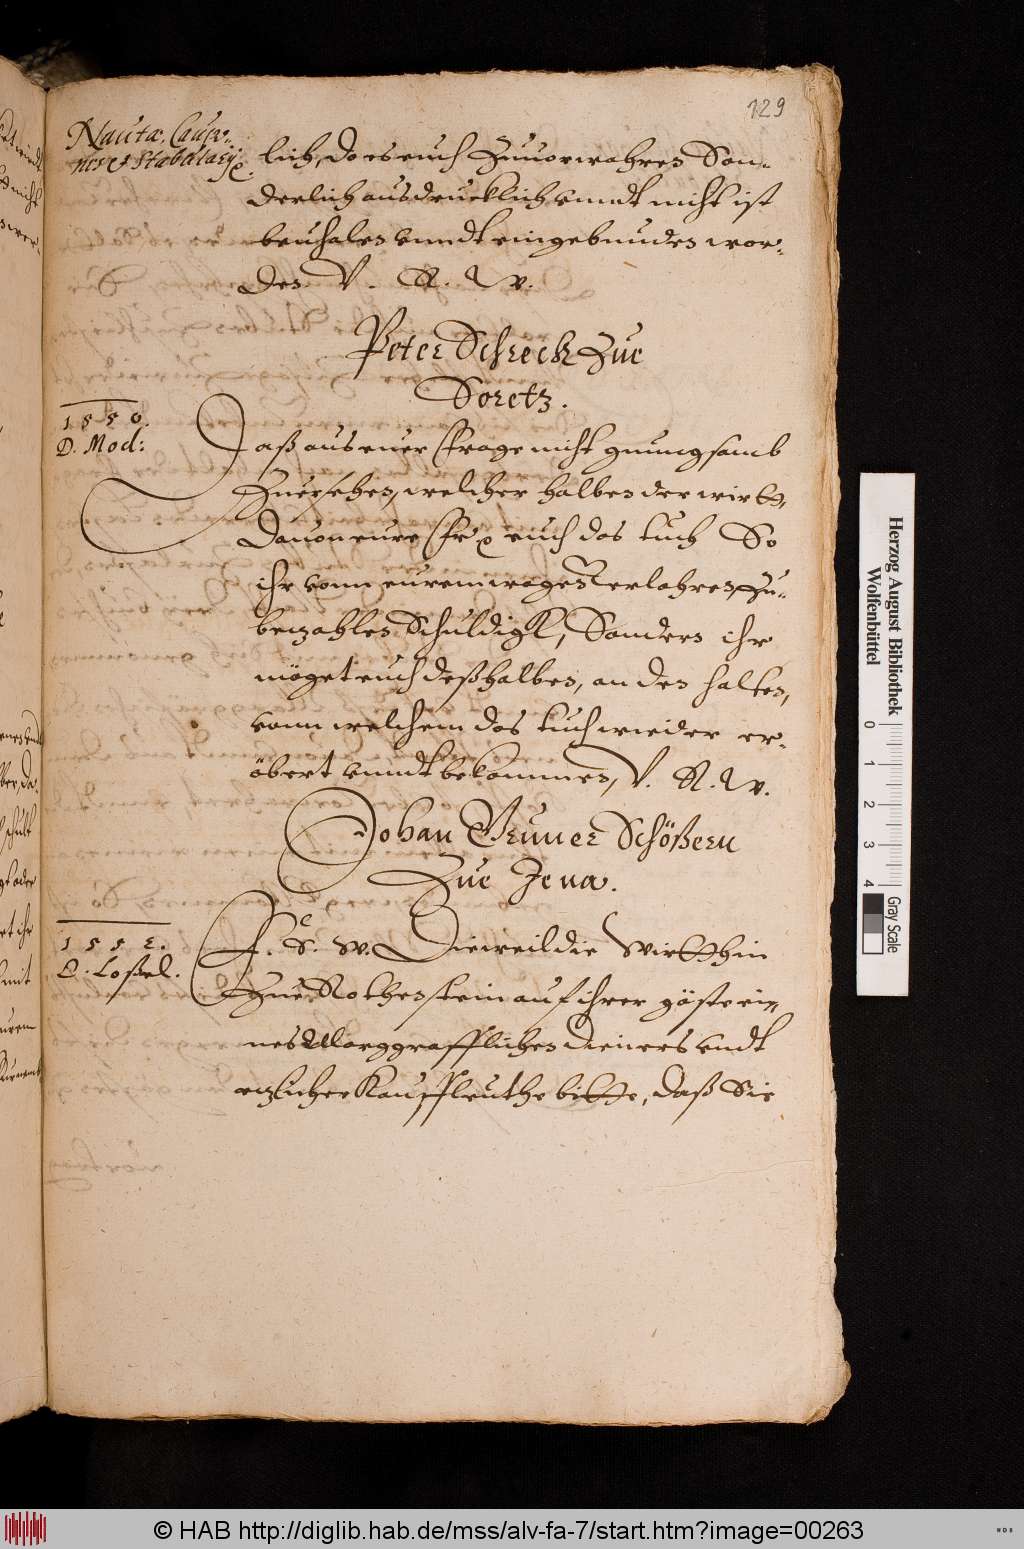 129
Nautæ, Caupo-
nes et Stabularij
lich, do es euch Zuuorwahren Son-
derlich ausdrucklich vnndt nicht ist
beuhalen vnndt eingebunden wor-
den V. R. W.
Peter Schreck Zue
Soretz.
1550.
D. Mod:
Daß aus euer frage nicht gnungsamb
Zuersehen, welcher halben der wirtt,
Dauon eure fr. euch das tuch So
ihr vonn eurem wagen verlohren, Zu-
betzahlen Schuldigk, Sondern ihr
möget euch deßhalben, an den halten,
vonn welchem das tuch wieder er-
öbert vnndt bekommen, V. R. W.
Johan Gruner Schößern
Zue Jena.
1552.
D. Loßel.
F. E. W. Dieweil die Wirtthin
Zue Rothenstein auf ihrer gäste ei-
nes Marggraffflichen dieners vndt
etzlicher Kauffleuthe bitte, daß Sie
Herzog August Bibliothek
Wolfenbüttel
0 1 2 3 4
Gray Scale
© HAB http://diglib.hab.de/mss/alv-fa-7/start.htm?image=00263